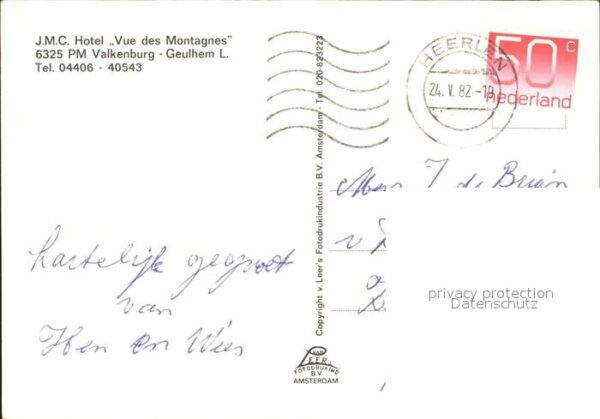 J.M.C. Hotel „Vue des Montagnes”
6325 PM Valkenburg - Geulhem L.
Tel. 04406 - 40543
HEERLEN
24. V. 82 - 18
50 c
nederland
Copyright v. Leer's Fotodrukindustrie B.V. Amsterdam - Tel. 020-823223
hartelijk gegroet
van
Hen en Wies
J de Bruin
privacy protection
Datenschutz
VAN
LEER
FOTODRUKIND
B.V.
AMSTERDAM